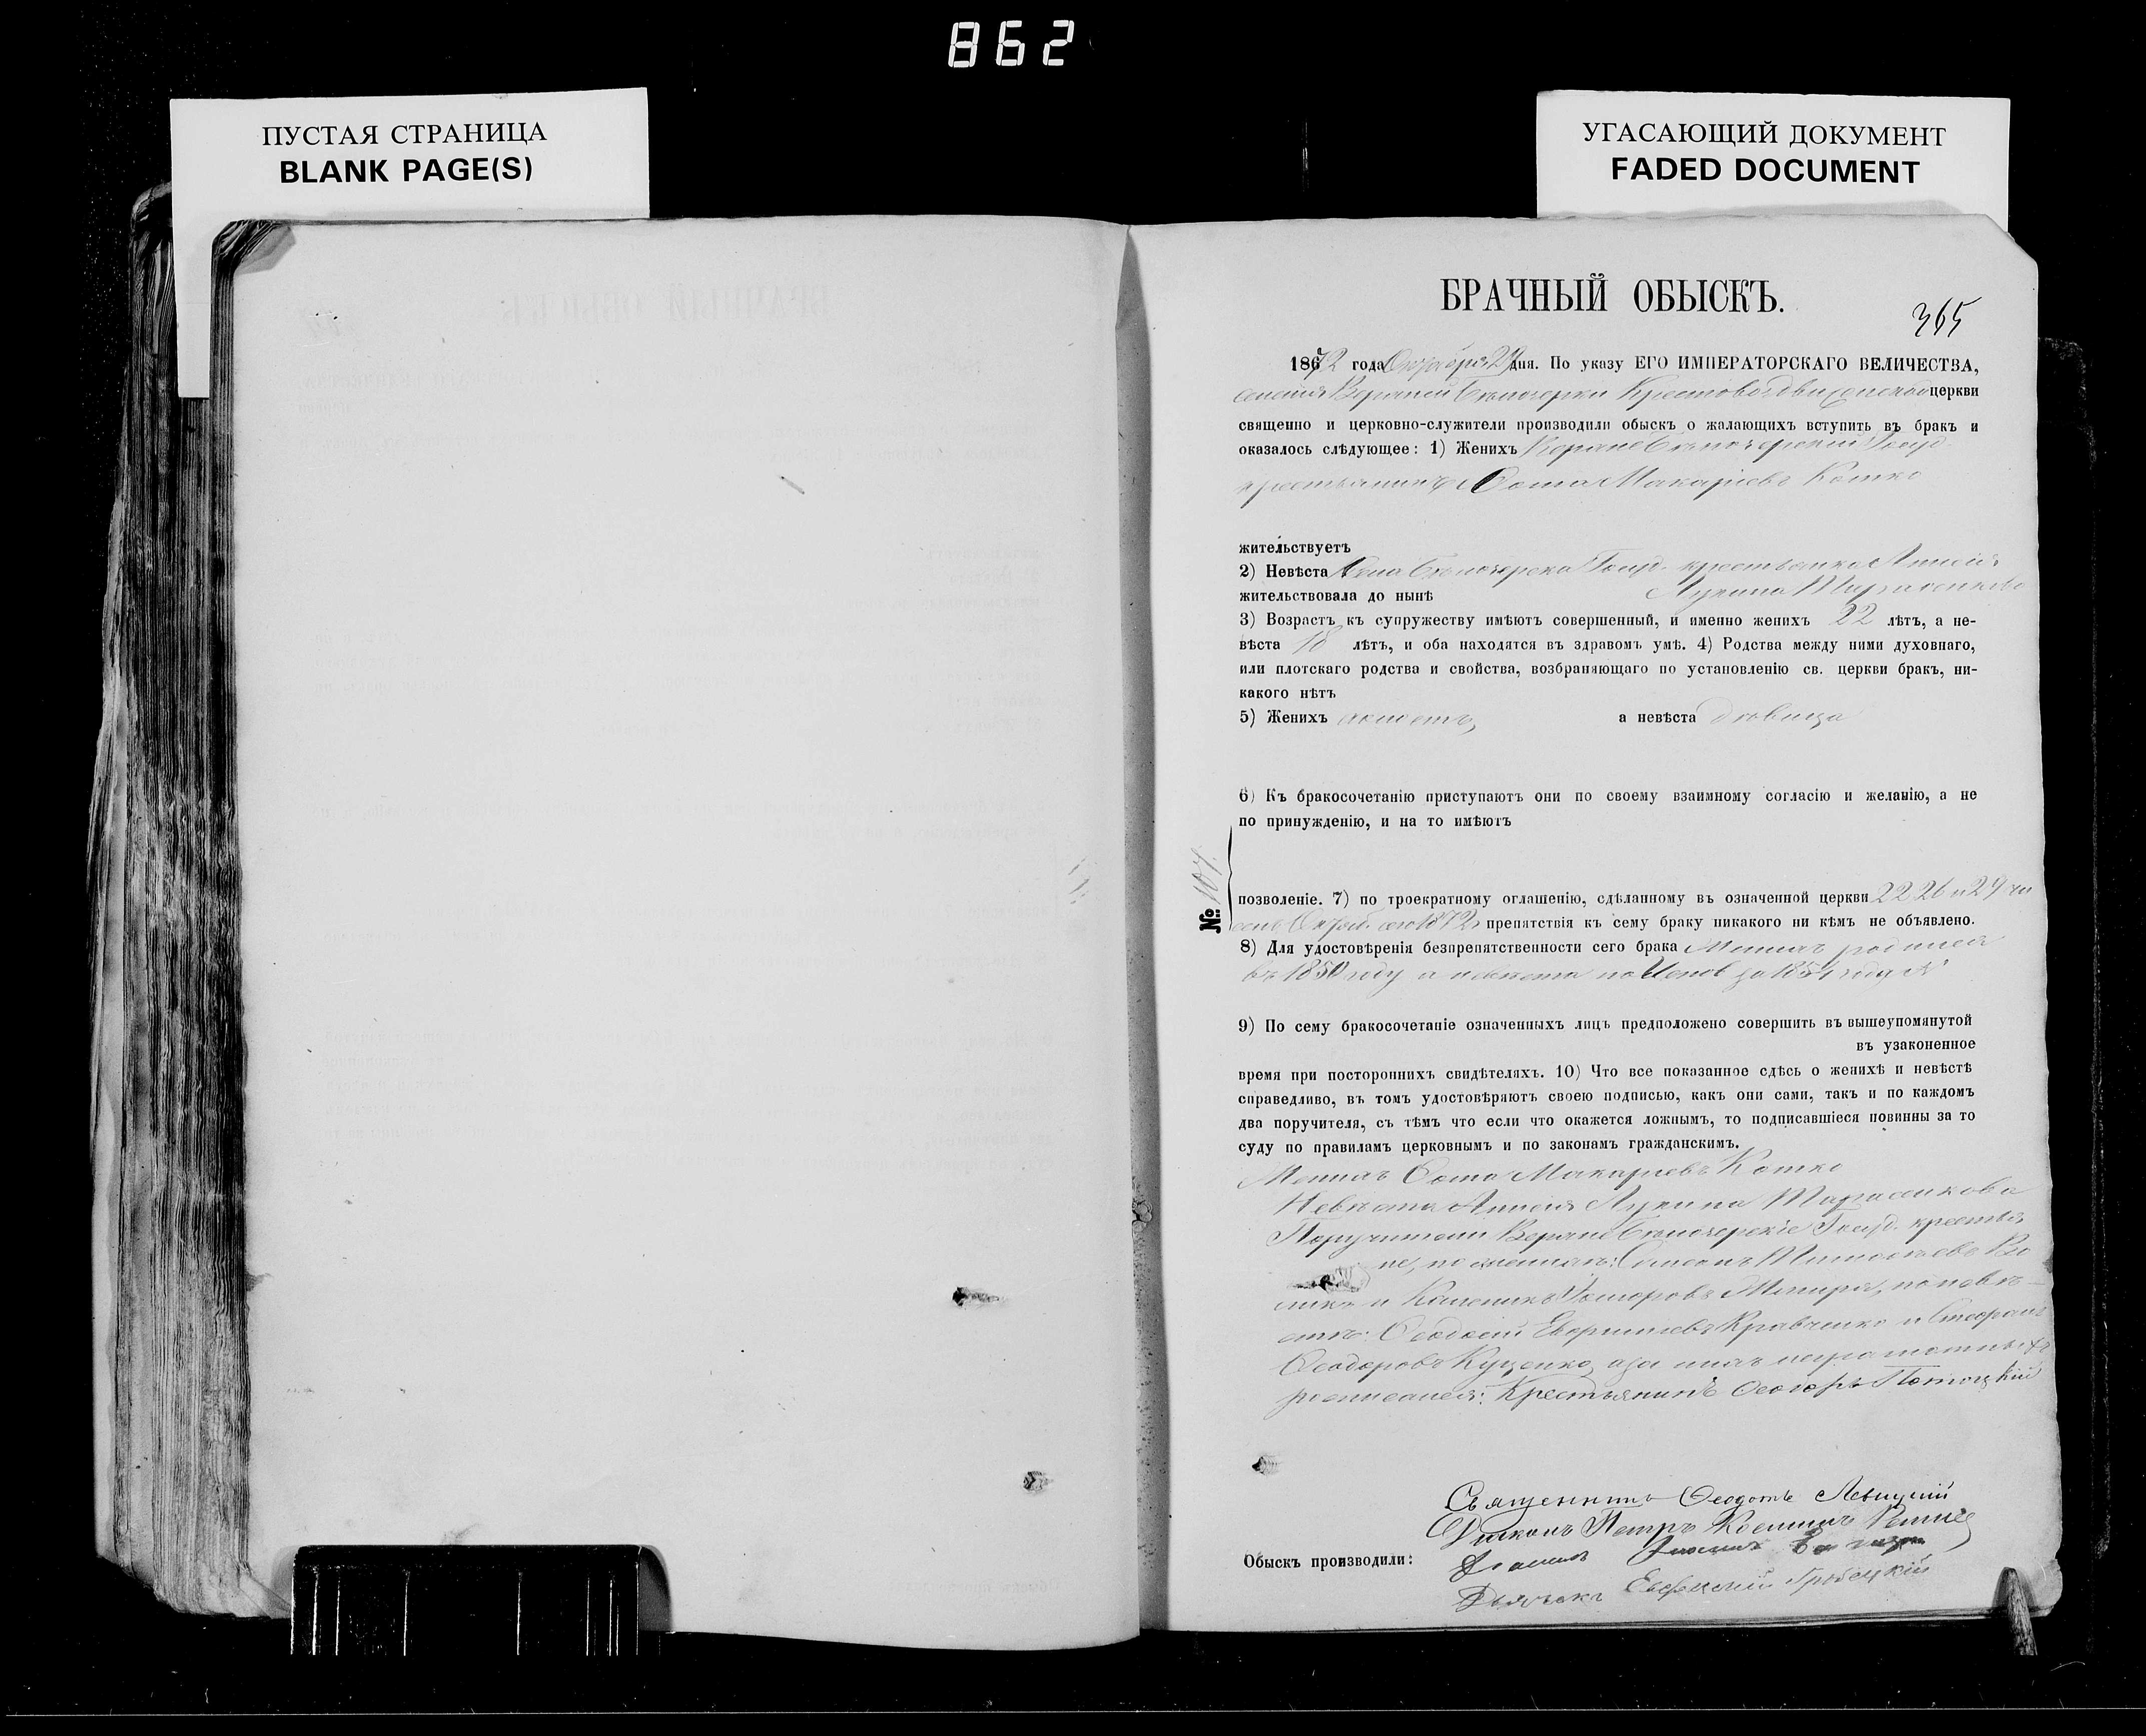 862
ПУСТАЯ СТРАНИЦА
BLANK PAGE(S)
УГАСАЮЩИЙ ДОКУМЕНТ
FADED DOCUMENT
БРАЧНЫЙ ОБЫСКЪ.
365
1872 года Октября 29 дня. По указу ЕГО ИМПЕРАТОРСКАГО ВЕЛИЧЕСТВА,
Крестовоздвиженской церкви
священно и церковно-служители производили обыск о жалающихъ вступить въ бракъ и
оказалось слѣдующее: 1) Женихъ
крестьянинъ Фома Макаріевъ Котко
жительствуетъ
2) Невѣста Села Бѣлозерка Госуд. крестьянка
жительствовала до нынѣ Лукина Тарасенкова
3) Возрастъ къ супружеству имѣютъ совершенный, и именно женихъ 22 лѣтъ, а не-
вѣста 18 лѣтъ, и оба находятся въ здравомъ умѣ. 4) Родства между ними духовнаго,
или плотскаго родства и свойства, возбраняющаго по установленію св. церкви бракъ, ни-
какого нѣтъ
5) Женихъ а невѣста дѣвица
6) Къ бракосочетанію приступаютъ они по своему взаимному согласію и желанію, а не
по принужденію, и на то имѣютъ
№ 107.
позволеніе. 7) по троекратному оглашенію, сдѣланному въ означенной церкви 22 26 и 29 чи
1872 препятствія къ сему браку никакого ни кѣмъ не объявлено.
8) Для удостовѣренія безпрепятственности сего брака Женихъ родился
въ 1850 году а невѣста по за 1854 году №
9) По сему бракосочетаніе означенныхъ лицъ предположено совершить въ вышеупомянутой
въ узаконенное
время при постороннихъ свидѣтеляхъ. 10) Что все показанное сдѣсь о женихѣ и невѣстѣ
справедливо, въ томъ удостовѣряютъ своею подписью, какъ они сами, такъ и по каждомъ
два поручителя, съ тѣмъ что если что окажется ложнымъ, то подписавшіеся повинны за то
суду по правиламъ церковнымъ и по законамъ гражданскимъ.
Женихъ Фома Макаріевъ Котко
Невѣста Лукина Тарасенкова
Поручители Госуд. крестья
не, по женихѣ: Симеонъ Тимофѣевъ
и Каленикъ понѣвѣ-
стѣ: Феодосій Кравченко и Стефанъ
Феодоровъ Куценко, а за нихъ неграмотныхъ
росписался: Крестьянинъ Феодоръ Потоцкій
Священникъ Феодотъ Левицкій
Дьяконъ Петръ
Обыскъ производили:
Дьячекъ Евфимій